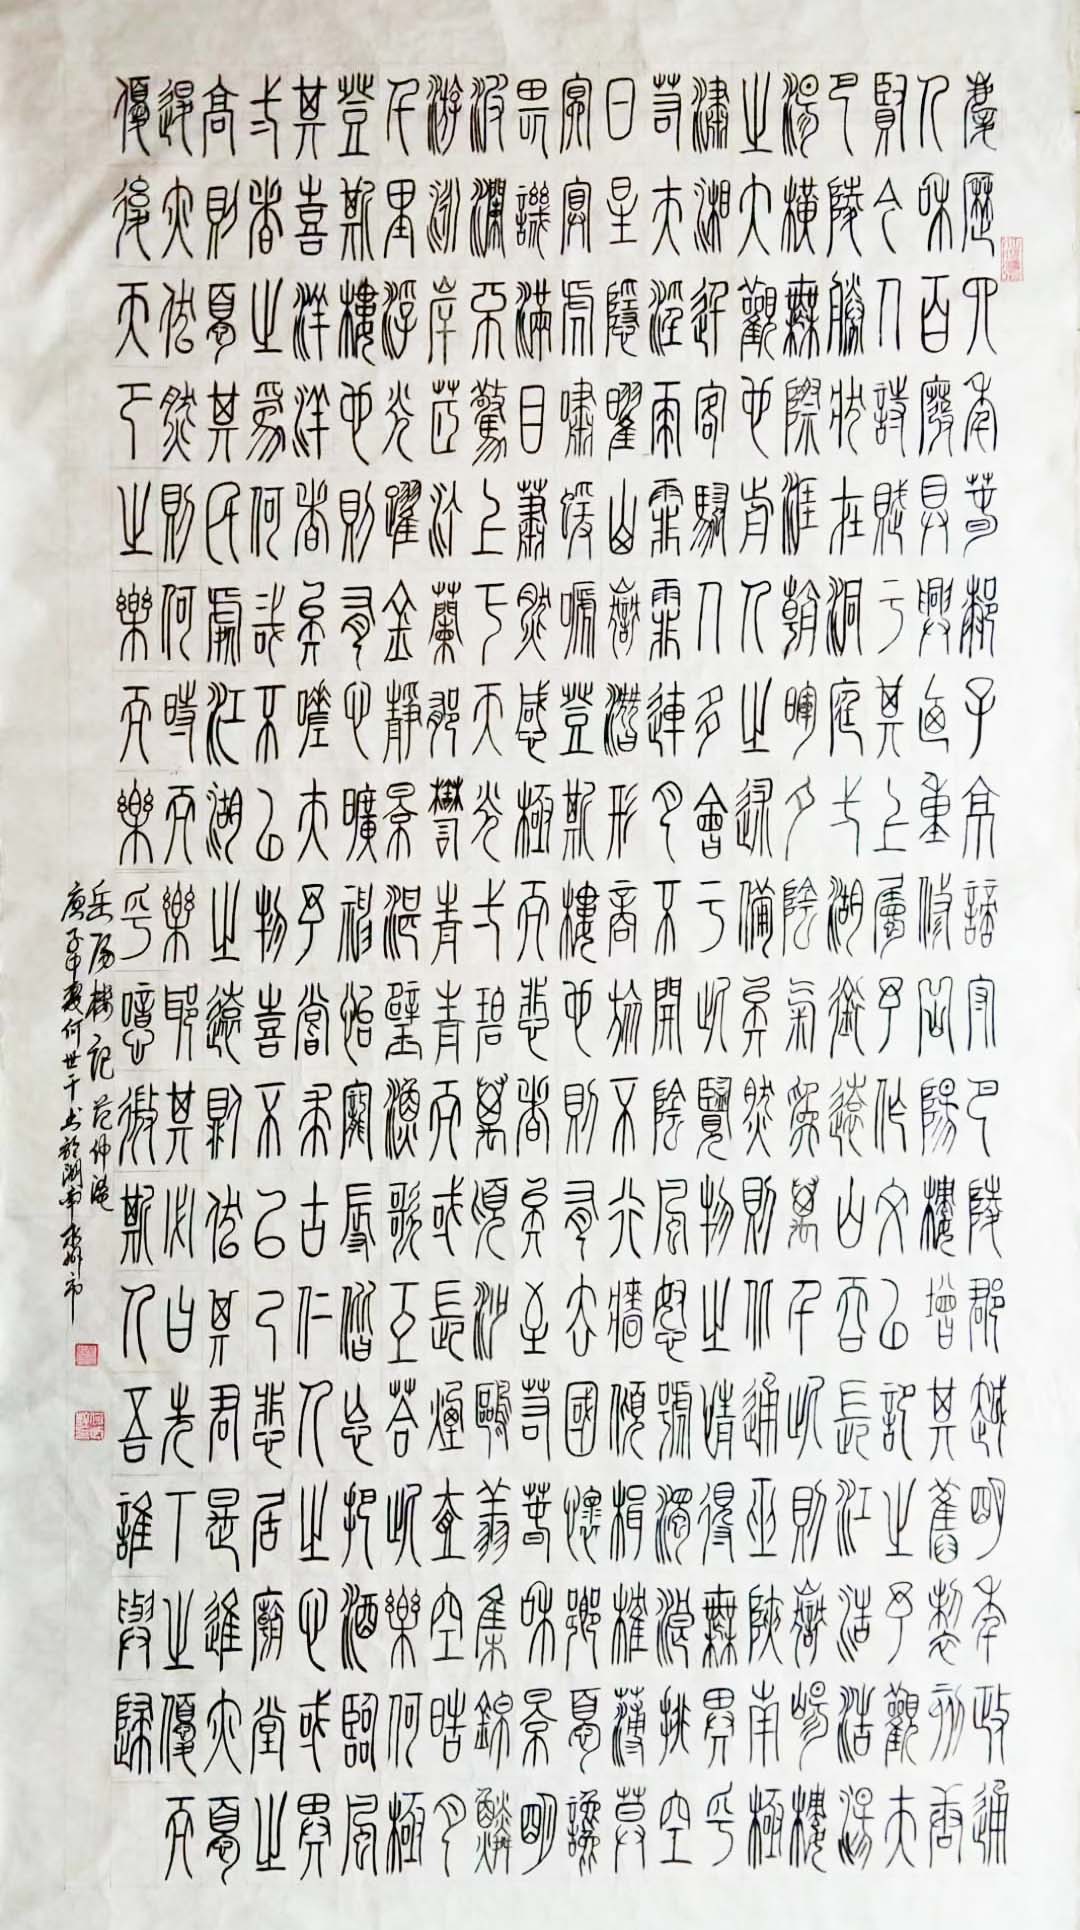 慶歷四年春滕子京謫守巴陵郡越明年政通
人和百廢具興迺重修岳陽樓增其舊製刻唐
賢今人詩賦于其上屬予作文以記之予觀夫
巴陵勝狀在洞庭一湖銜遠山吞長江浩浩湯
湯橫無際涯朝暉夕陰氣象萬千此則嶽陽樓
之大觀也前人之述備矣然則北通巫峽南極
瀟湘遷客騷人多會于此覽物之情得無異乎
若夫淫雨霏霏連月不開陰風怒號濁浪排空
日星隱曜山嶽潛形商旅不行檣傾楫摧薄暮
冥冥虎嘯猨嗁登斯樓也則有去國懷鄉憂讒
畏譏滿目蕭然感極而悲者矣至若春和景明
波瀾不驚上下天光一碧萬頃沙鷗翔集錦鱗
游泳岸芷汀蘭郁鬱青青而或長煙壹空皓月
千里浮光躍金靜景沉璧漁歌互答此樂何極
登斯樓也則有心曠神怡寵辱偕忘把酒臨風
其喜洋洋者矣嗟夫予嘗求古仁人之心或異
二者之為何哉不以物喜不以己悲居廟堂之
高則憂其民處江湖之遠則憂其君是進亦憂
退亦憂然則何時而樂耶其必曰先天下之憂而
憂後天下之樂而樂乎噫微斯人吾誰與歸
岳陽樓記 范仲淹
庚子中夏何世干书於湖南永州市